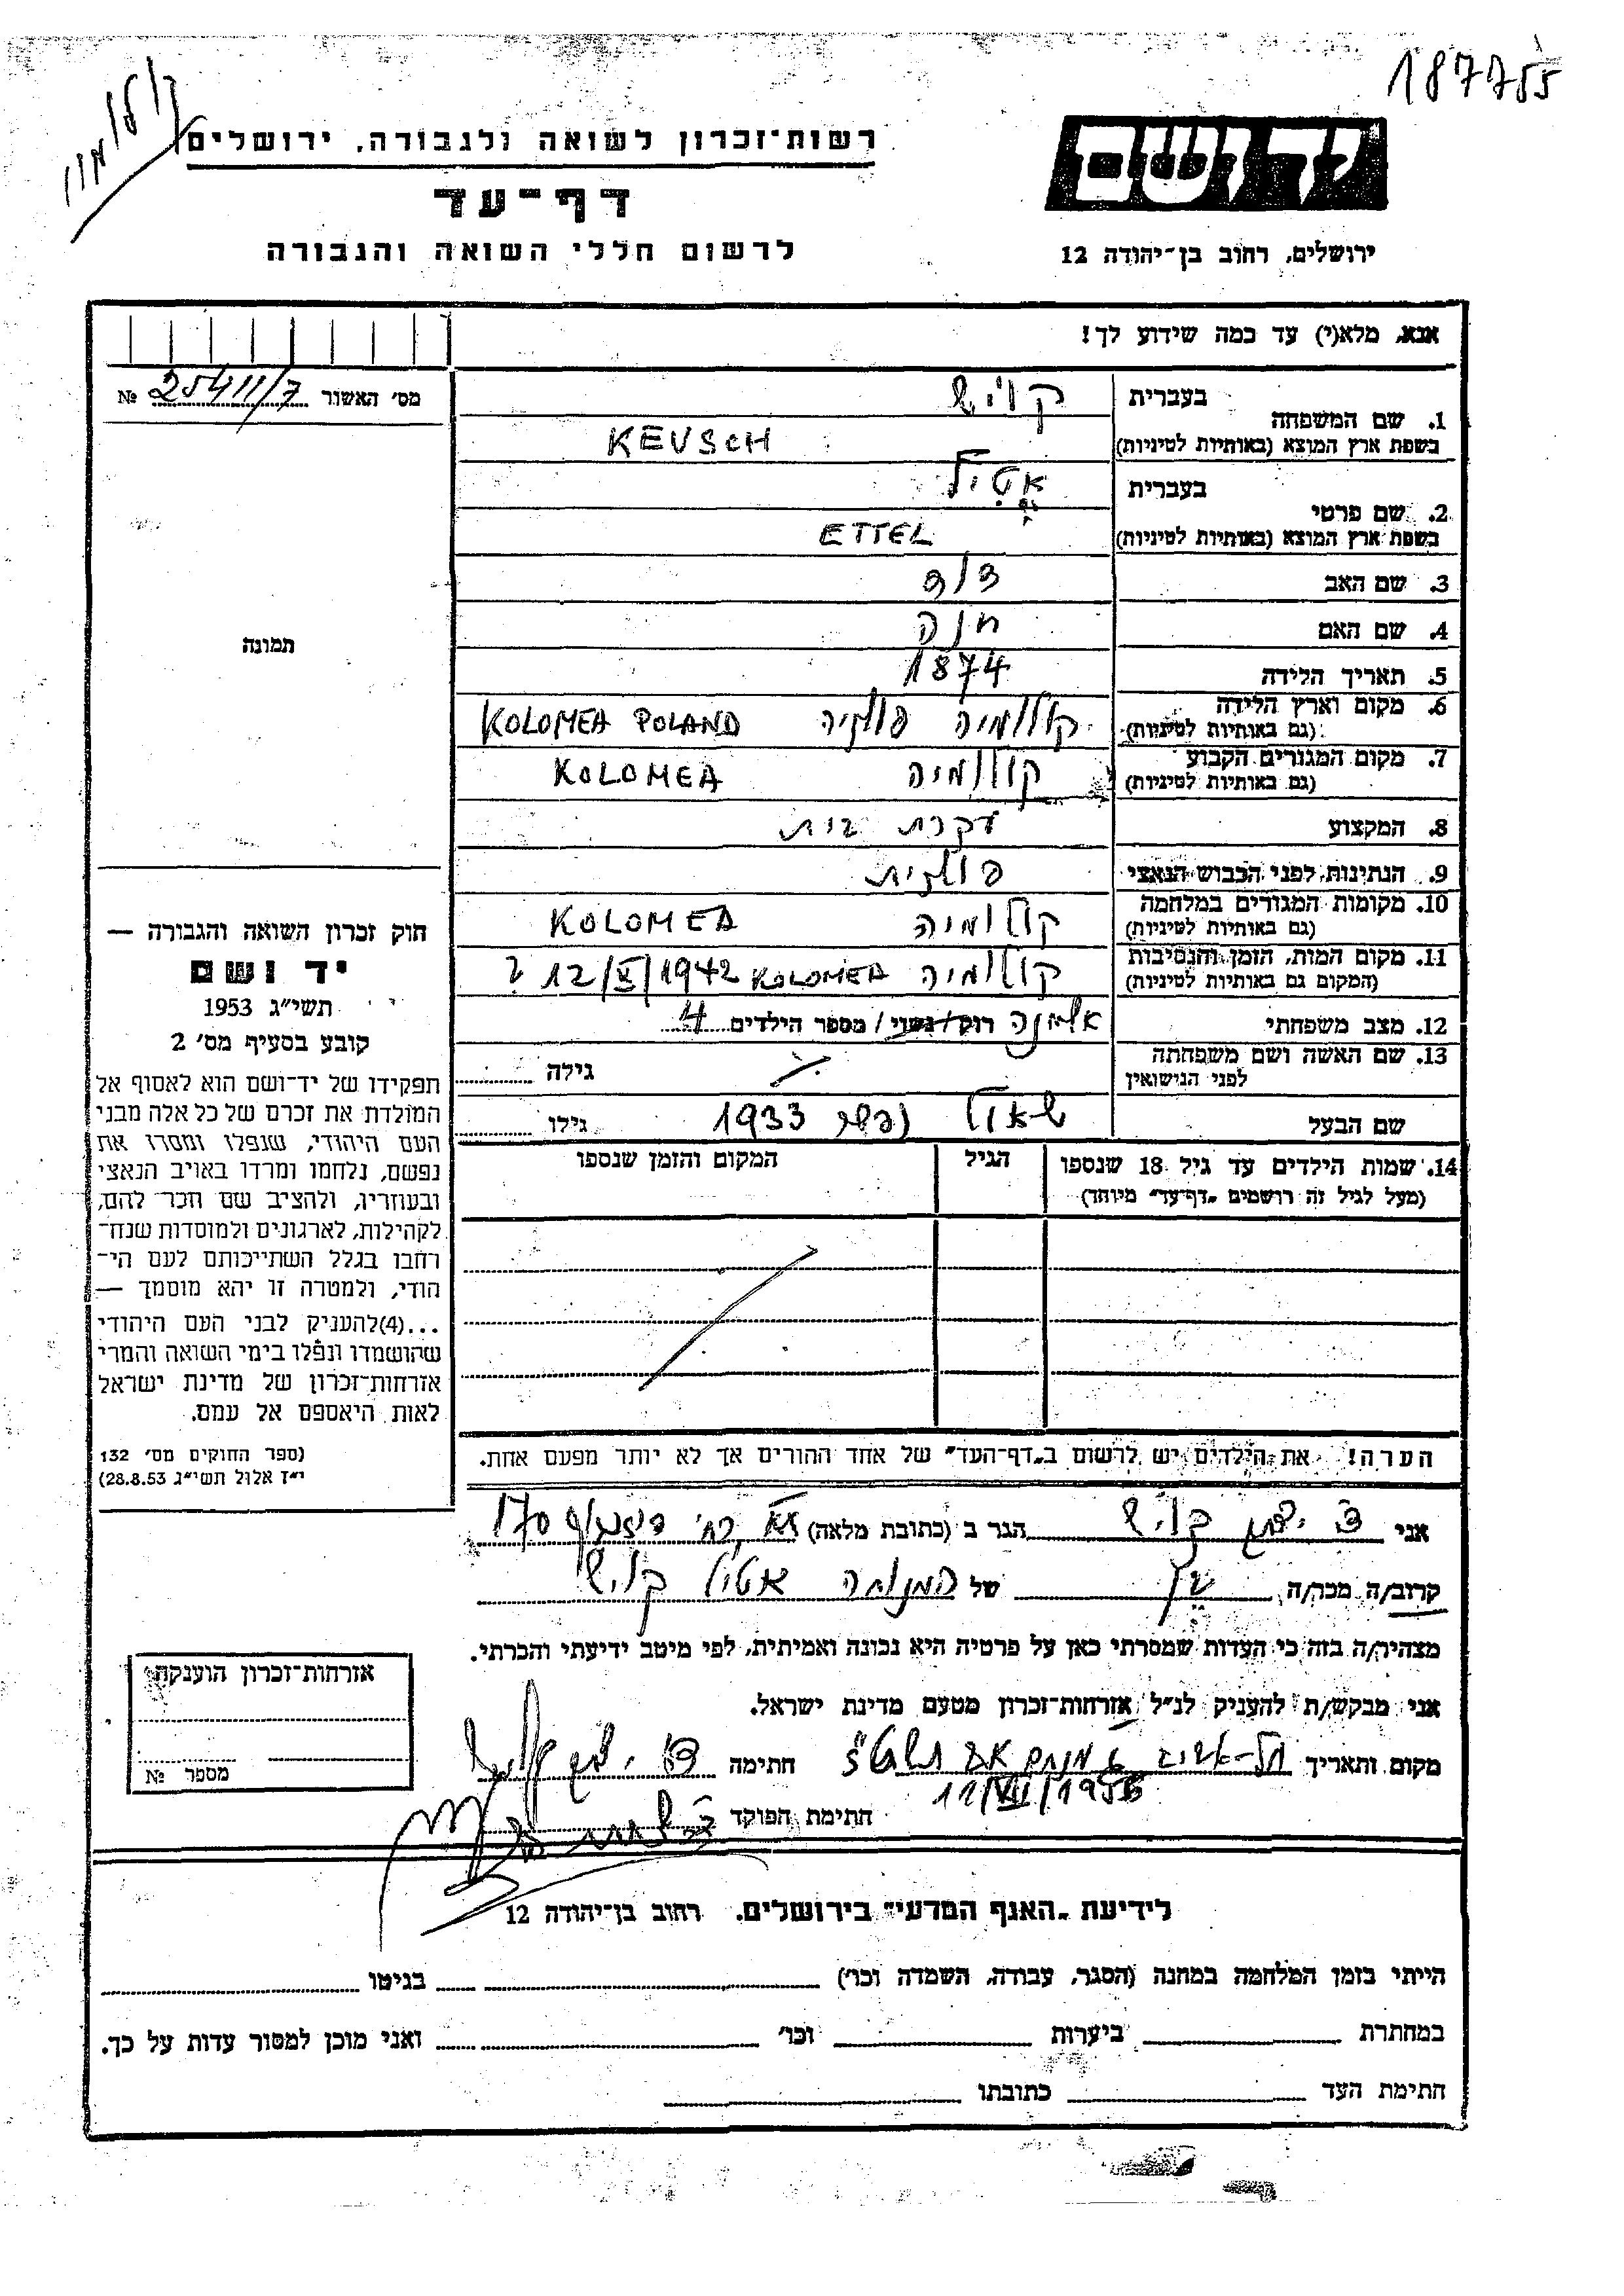 187755
רשות־זכרון לשואה ולגבורה, ירושלים
דף־עד
לרשום חללי השואה והגבורה
יד ושם
ירושלים, רחוב בן־יהודה 12
אנא, מלא(י) עד כמה שידוע לך!
מס׳ האשור 25411/7 №
תמונה
חוק זכרון השואה והגבורה —
יד ושם
תשי״ג 1953
קובע בסעיף מס׳ 2
תפקידו של יד־ושם הוא לאסוף אל
המולדת את זכרם של כל אלה מבני
העם היהודי, שנפלו ומסרו את
נפשם, נלחמו ומרדו באויב הנאצי
ובעוזריו, ולהציב שם וזכר להם,
לקהילות, לארגונים ולמוסדות שנח־
רחבו בגלל השתייכותם לעם הי־
הודי, ולמטרה זו יהא מוסמך —
...(4)להעניק לבני העם היהודי
שהושמדו ונפלו בימי השואה והמרי
אזרחות־זכרון של מדינת ישראל
לאות היאספם אל עמם.
(ספר החוקים מס׳ 132
י״ז אלול תשי״ג 28.8.53)
1. שם המשפחה בעברית קויש
בשפת ארץ המוצא (באותיות לטיניות) KEUSCH
2. שם פרטי בעברית אטיל
בשפת ארץ המוצא (באותיות לטיניות) ETTEL
3. שם האב דוד
4. שם האם חנה
5. תאריך הלידה 1874
6. מקום וארץ הלידה (גם באותיות לטיניות) קולומיה פולניה KOLOMEA POLAND
7. מקום המגורים הקבוע (גם באותיות לטיניות) קולומיה KOLOMEA
8. המקצוע עקרת בית
9. הנתינות לפני הכבוש הנאצי פולנית
10. מקומות המגורים במלחמה (גם באותיות לטיניות) קולומיה KOLOMEA
11. מקום המות, הזמן והנסיבות (המקום גם באותיות לטיניות) קולומיה KOLOMEA 12/X/1942 ?
12. מצב משפחתי אלמנה רוק/נשוי/ מספר הילדים 4
13. שם האשה ושם משפחתה לפני הנישואין גילה
שם הבעל שאול נפטר 1933 גילו
14. שמות הילדים עד גיל 18 שנספו (מעל לגיל זה רושמים „דף־עד״ מיוחד) הגיל המקום והזמן שנספו
הערה! את הילדים יש לרשום ב„דף־העד״ של אחד ההורים אך לא יותר מפעם אחת.
אני קויש הגר ב (כתובת מלאה) ת״א רח׳ דיזנגוף 170
קרוב/ה מכר/ה של המנוחה אטיל קויש
מצהיר/ה בזה כי העדות שמסרתי כאן על פרטיה היא נכונה ואמיתית, לפי מיטב ידיעתי והכרתי.
אני מבקש/ת להעניק לנ״ל אזרחות־זכרון מטעם מדינת ישראל.
מקום ותאריך תל־אביב מנחם אב חתימה
חתימת הפוקד
אזרחות־זכרון הוענקה
מספר №
לידיעת „האגף המדעי״ בירושלים, רחוב בן־יהודה 12
הייתי בזמן המלחמה במחנה (הסגר, עבודה, השמדה וכו׳) בגיטו
במחתרת ביערות וכו׳ ואני מוכן למסור עדות על כך.
חתימת העד כתובתו